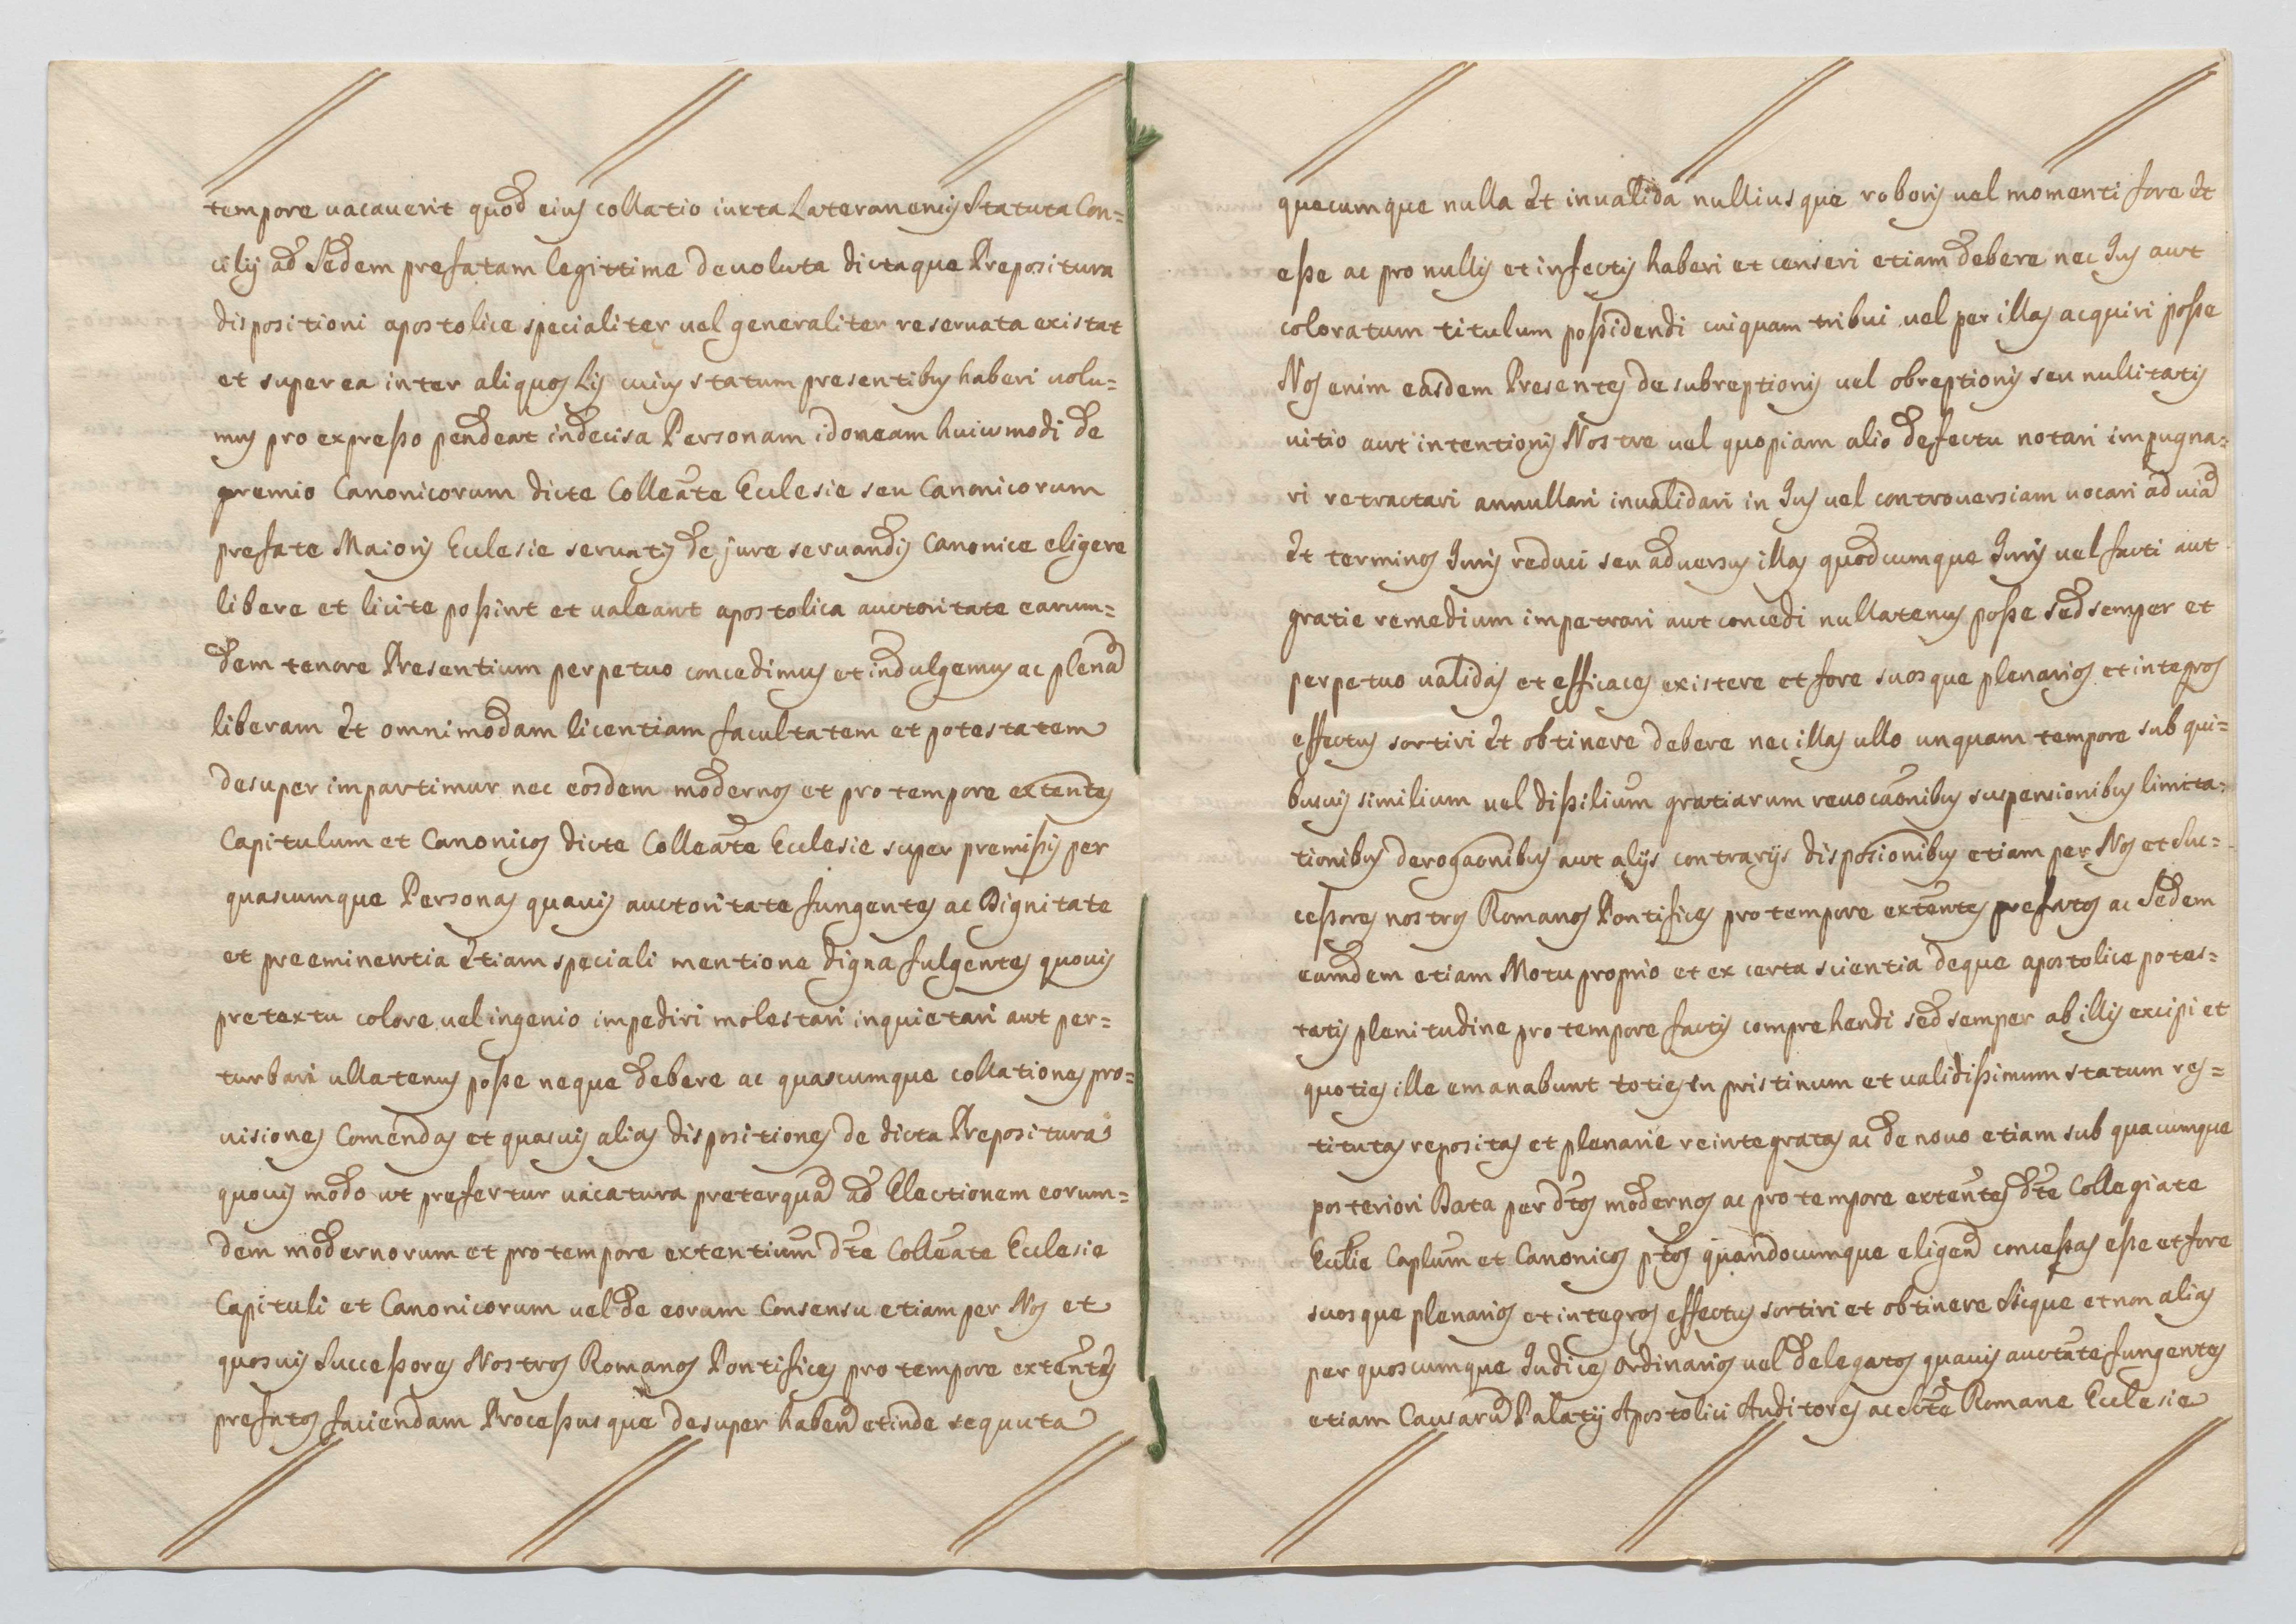 tempore uacauerit quod eius collatio iuxta Lateranensis Statuta Con=
cilij ad Sedem prefatam legittime deuoluta dictaque Prepositura
dispositioni apostolice specialiter uel generaliter reseruata existat
et super ea inter aliquos Lis cuius statum presentibus haberi uolu=
mus pro expreßo pendeat indecisa Personam idoneam huiusmodi de
gremio Canonicorum dicte Colleate Ecclesie seu Canonicorum
prefate Maioris Ecclesie seruatis de jure seruandis Canonice eligere
libere et licite poßint et ualeant apostolica auctoritate earum=
dem tenore Presentium perpetuo concedimus et indulgemus ac plenã
liberam et omnimodam licentiam facultatem et potestatem
desuper impartimur nec eosdem modernos et pro tempore extentes
Capitulum et Canonicos dicte Colleate Ecclesie super premißis per
quascumque Personas quauis auctoritate fungentes ac Dignitate
et preeminentia etiam speciali mentione digna fulgentes quouis
pretextu colore uel ingenio impediri molestari inquietari aut per=
turbari ullatenus poße neque debere ac quascumque collationes pro=
uisiones Comendas et quasuis alias dispositiones de dicta Prepositura
quouis modo ut prefertur uacatura preterquã ad Electionem eorum=
dem modernorum et pro tempore extentium dte Colleate Ecclesie
Capituli et Canonicorum uel de eorum Consensu etiam per Nos et
quosuis Succeßores Nostros Romanos Pontifices pro tempore extentes
prefatos faciendam Proceßusque desuper habend et inde sequuta
quecumque nulla et inualida nulliusque roboris uel momenti fore et
eße ac pro nullis et infectis haberi et censeri etiam debere nec Jus aut
coloratum titulum poßidendi cuiquam tribui uel per illas acquiri poße
Nos enim easdem Presentes de subreptionis uel obreptionis seu nullitatis
uitio aut intentionis Nostre uel quopiam alio defectu notari impugna=
ri retractari annullari inualidari in Jus uel controuersiam uocari ad uiã
et terminos Juris reduci seu aduersus illas quodcumque Juris uel facti aut
gratie remedium impetrari aut concedi nullatenus poße sed semper et
perpetuo ualidas et efficaces existere et fore suosque plenarios et integros
effectus sortiri et obtinere debere nec illas ullo unquam tempore sub qui=
busuis similium uel dißilium gratiarum reuocaonibus suspensionibus limita=
tionibus derogaonibus aut alijs contrarijs disposionibus etiam per Nos et Suc=
ceßores nostros Romanos Pontifices pro tempore extentes prefatos ac Sedem
eamdem etiam Motu proprio et ex certa scientia deque apostolice potes=
tatis plenitudine pro tempore factis comprehendi sed semper ab illis excipi et
quoties ille emanabunt toties in pristinum et ualidißimum statum res=
titutas repositas et plenarie reintegratas ac de nouo etiam sub quacumque
posteriori Data per dtos modernos ac pro tempore extentes dte Collegiate
Ecclie Caplum et Canonicos ptos quandocumque eligend conceßas eße et fore
suosque plenarios et integros effectus sortiri et obtinere Sicque et non alias
per quoscumque Judices ordinarios uel delegatos quauis auctate fungentes
etiam Causarũ Palatij Apostolici Auditores ac Ste Romane Ecclesie